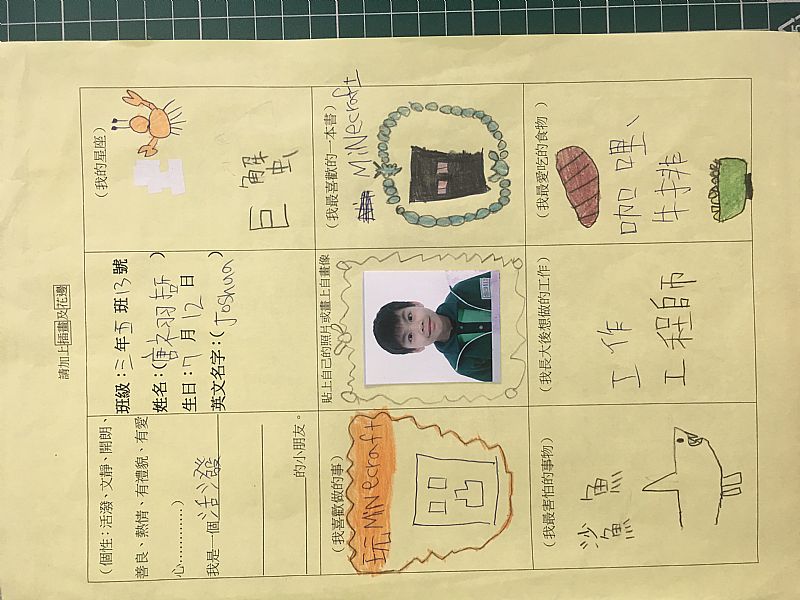 請加上插畫及花邊
(個性：活潑、文靜、開朗、
善良、熱情、有禮貌、有愛
心…………)
我是一個活潑
的小朋友。
班級：三年5班13號
姓名：(唐祤哲)
生日：7月12日
英文名字：(Joshua)
(我的星座)
巨蟹
(我喜歡做的事)
玩MiNecraft
貼上自己的照片或畫上自畫像
(我最喜歡的一本書)
MiNecraft
(我最害怕的事物)
沙魚
鯊
(我長大後想做的工作)
工作
工程師
(我最愛吃的食物)
咖哩、
牛排